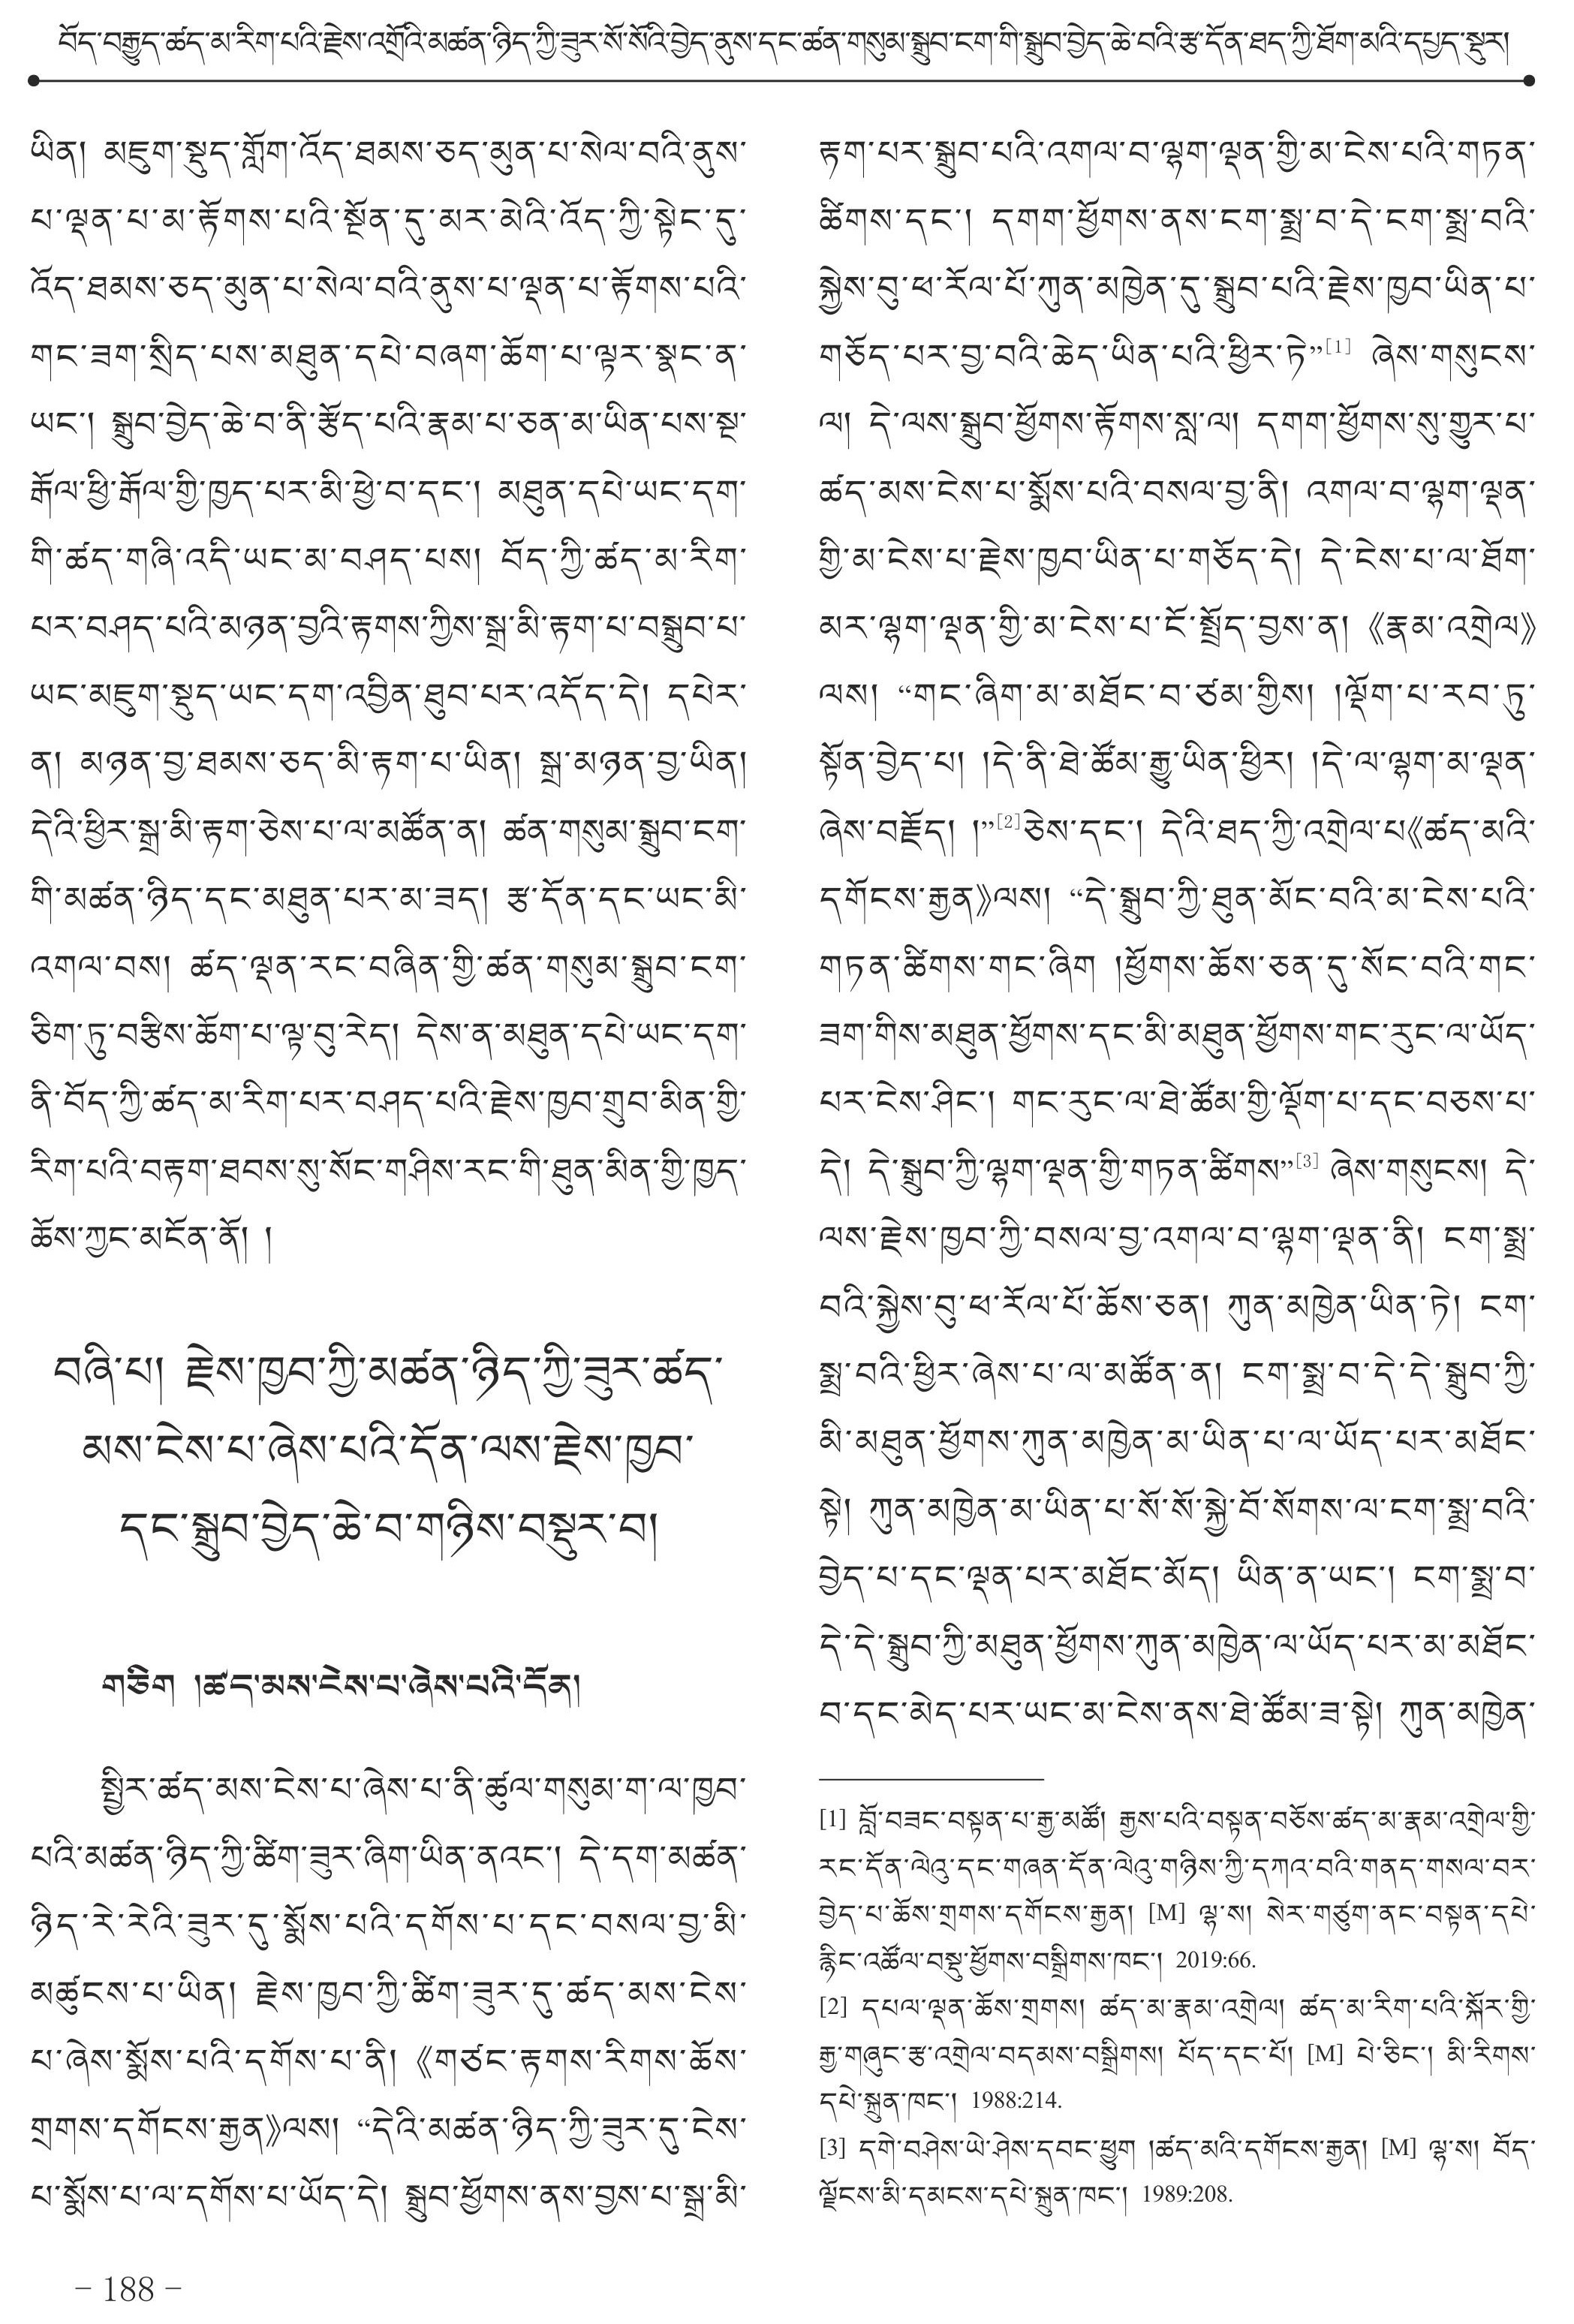 བོད་བརྒྱུད་ཚད་མ་རིག་པའི་རྗེས་འགྲོའི་མཚན་ཉིད་ཀྱི་ཟུར་སོ་སོའི་བྱེད་ནུས་དང་ཚན་གསུམ་སྒྲུབ་ངག་གི་སྒྲུབ་བྱེད་ཆེ་བའི་རྩ་དོན་ཐད་ཀྱི་ཐོག་མའི་དཔྱད་སྡུར།
ཡིན། མཇུག་སྡུད་གློག་འོད་ཐམས་ཅད་མུན་པ་སེལ་བའི་ནུས་
པ་ལྡན་པ་མ་རྟོགས་པའི་སྔོན་དུ་མར་མེའི་འོད་ཀྱི་སྟེང་དུ་
འོད་ཐམས་ཅད་མུན་པ་སེལ་བའི་ནུས་པ་ལྡན་པ་རྟོགས་པའི་
གང་ཟག་སྲིད་པས་མཐུན་དཔེ་བཞག་ཆོག་པ་ལྟར་སྣང་ན་
ཡང་། སྒྲུབ་བྱེད་ཆེ་བ་ནི་རྩོད་པའི་རྣམ་པ་ཅན་མ་ཡིན་པས་སྔ་
རྒོལ་ཕྱི་རྒོལ་གྱི་ཁྱད་པར་མི་ཕྱེ་བ་དང་། མཐུན་དཔེ་ཡང་དག་
གི་ཚད་གཞི་འདི་ཡང་མ་བཤད་པས། བོད་ཀྱི་ཚད་མ་རིག་
པར་བཤད་པའི་མཉན་བྱའི་རྟགས་ཀྱིས་སྒྲ་མི་རྟག་པ་བསྒྲུབ་པ་
ཡང་མཇུག་སྡུད་ཡང་དག་འབྱིན་ཐུབ་པར་འདོད་དེ། དཔེར་
ན། མཉན་བྱ་ཐམས་ཅད་མི་རྟག་པ་ཡིན། སྒྲ་མཉན་བྱ་ཡིན།
དེའི་ཕྱིར་སྒྲ་མི་རྟག་ཅེས་པ་ལ་མཚོན་ན། ཚན་གསུམ་སྒྲུབ་ངག་
གི་མཚན་ཉིད་དང་མཐུན་པར་མ་ཟད། རྩ་དོན་དང་ཡང་མི་
འགལ་བས། ཚད་ལྡན་རང་བཞིན་གྱི་ཚན་གསུམ་སྒྲུབ་ངག་
ཅིག་ཏུ་བརྩིས་ཆོག་པ་ལྟ་བུ་རེད། དེས་ན་མཐུན་དཔེ་ཡང་དག་
ནི་བོད་ཀྱི་ཚད་མ་རིག་པར་བཤད་པའི་རྗེས་ཁྱབ་གྲུབ་མིན་གྱི་
རིག་པའི་བརྟག་ཐབས་སུ་སོང་གཤིས་རང་གི་ཐུན་མིན་གྱི་ཁྱད་
ཆོས་ཀྱང་མངོན་ནོ། །
བཞི་པ། རྗེས་ཁྱབ་ཀྱི་མཚན་ཉིད་ཀྱི་ཟུར་ཚད་
མས་ངེས་པ་ཞེས་པའི་དོན་ལས་རྗེས་ཁྱབ་
དང་སྒྲུབ་བྱེད་ཆེ་བ་གཉིས་བསྡུར་བ།
གཅིག །ཚད་མས་ངེས་པ་ཞེས་པའི་དོན།
སྤྱིར་ཚད་མས་ངེས་པ་ཞེས་པ་ནི་ཚུལ་གསུམ་ག་ལ་ཁྱབ་
པའི་མཚན་ཉིད་ཀྱི་ཚིག་ཟུར་ཞིག་ཡིན་ནའང་། དེ་དག་མཚན་
ཉིད་རེ་རེའི་ཟུར་དུ་སྨོས་པའི་དགོས་པ་དང་བསལ་བྱ་མི་
མཚུངས་པ་ཡིན། རྗེས་ཁྱབ་ཀྱི་ཚིག་ཟུར་དུ་ཚད་མས་ངེས་
པ་ཞེས་སྨོས་པའི་དགོས་པ་ནི། 《གཙང་རྟགས་རིགས་ཆོས་
གྲགས་དགོངས་རྒྱན》ལས། “དེའི་མཚན་ཉིད་ཀྱི་ཟུར་དུ་ངེས་
པ་སྨོས་པ་ལ་དགོས་པ་ཡོད་དེ། སྒྲུབ་ཕྱོགས་ནས་བྱས་པ་སྒྲ་མི་
རྟག་པར་སྒྲུབ་པའི་འགལ་བ་ལྷག་ལྡན་གྱི་མ་ངེས་པའི་གཏན་
ཚིགས་དང་། དགག་ཕྱོགས་ནས་ངག་སྨྲ་བ་དེ་ངག་སྨྲ་བའི་
སྐྱེས་བུ་ཕ་རོལ་པོ་ཀུན་མཁྱེན་དུ་སྒྲུབ་པའི་རྗེས་ཁྱབ་ཡིན་པ་
གཅོད་པར་བྱ་བའི་ཆེད་ཡིན་པའི་ཕྱིར་ཏེ”[1] ཞེས་གསུངས་
ལ། དེ་ལས་སྒྲུབ་ཕྱོགས་རྟོགས་སླ་ལ། དགག་ཕྱོགས་སུ་གྱུར་པ་
ཚད་མས་ངེས་པ་སྨོས་པའི་བསལ་བྱ་ནི། འགལ་བ་ལྷག་ལྡན་
གྱི་མ་ངེས་པ་རྗེས་ཁྱབ་ཡིན་པ་གཅོད་དེ། དེ་ངེས་པ་ལ་ཐོག་
མར་ལྷག་ལྡན་གྱི་མ་ངེས་པ་ངོ་སྤྲོད་བྱས་ན། 《རྣམ་འགྲེལ》
ལས། “གང་ཞིག་མ་མཐོང་བ་ཙམ་གྱིས། །ལྡོག་པ་རབ་ཏུ་
སྟོན་བྱེད་པ། །དེ་ནི་ཐེ་ཚོམ་རྒྱུ་ཡིན་ཕྱིར། །དེ་ལ་ལྷག་མ་ལྡན་
ཞེས་བརྗོད། །”[2]ཅེས་དང་། དེའི་ཐད་ཀྱི་འགྲེལ་པ《ཚད་མའི་
དགོངས་རྒྱན》ལས། “དེ་སྒྲུབ་ཀྱི་ཐུན་མོང་བའི་མ་ངེས་པའི་
གཏན་ཚིགས་གང་ཞིག །ཕྱོགས་ཆོས་ཅན་དུ་སོང་བའི་གང་
ཟག་གིས་མཐུན་ཕྱོགས་དང་མི་མཐུན་ཕྱོགས་གང་རུང་ལ་ཡོད་
པར་ངེས་ཤིང་། གང་རུང་ལ་ཐེ་ཚོམ་གྱི་ལྡོག་པ་དང་བཅས་པ་
དེ། དེ་སྒྲུབ་ཀྱི་ལྷག་ལྡན་གྱི་གཏན་ཚིགས”[3] ཞེས་གསུངས། དེ་
ལས་རྗེས་ཁྱབ་ཀྱི་བསལ་བྱ་འགལ་བ་ལྷག་ལྡན་ནི། ངག་སྨྲ་
བའི་སྐྱེས་བུ་ཕ་རོལ་པོ་ཆོས་ཅན། ཀུན་མཁྱེན་ཡིན་ཏེ། ངག་
སྨྲ་བའི་ཕྱིར་ཞེས་པ་ལ་མཚོན་ན། ངག་སྨྲ་བ་དེ་དེ་སྒྲུབ་ཀྱི་
མི་མཐུན་ཕྱོགས་ཀུན་མཁྱེན་མ་ཡིན་པ་ལ་ཡོད་པར་མཐོང་
སྟེ། ཀུན་མཁྱེན་མ་ཡིན་པ་སོ་སོ་སྐྱེ་བོ་སོགས་ལ་ངག་སྨྲ་བའི་
བྱེད་པ་དང་ལྡན་པར་མཐོང་མོད། ཡིན་ན་ཡང་། ངག་སྨྲ་བ་
དེ་དེ་སྒྲུབ་ཀྱི་མཐུན་ཕྱོགས་ཀུན་མཁྱེན་ལ་ཡོད་པར་མ་མཐོང་
བ་དང་མེད་པར་ཡང་མ་ངེས་ནས་ཐེ་ཚོམ་ཟ་སྟེ། ཀུན་མཁྱེན་
[1] བློ་བཟང་བསྟན་པ་རྒྱ་མཚོ། རྒྱས་པའི་བསྟན་བཅོས་ཚད་མ་རྣམ་འགྲེལ་གྱི་
རང་དོན་ལེའུ་དང་གཞན་དོན་ལེའུ་གཉིས་ཀྱི་དཀའ་བའི་གནད་གསལ་བར་
བྱེད་པ་ཆོས་གྲགས་དགོངས་རྒྱན། [M] ལྷ་ས། སེར་གཙུག་ནང་བསྟན་དཔེ་
རྙིང་འཚོལ་བསྡུ་ཕྱོགས་བསྒྲིགས་ཁང་། 2019:66.
[2] དཔལ་ལྡན་ཆོས་གྲགས། ཚད་མ་རྣམ་འགྲེལ། ཚད་མ་རིག་པའི་སྐོར་གྱི་
རྒྱ་གཞུང་རྩ་འགྲེལ་བདམས་བསྒྲིགས། པོད་དང་པོ། [M] པེ་ཅིང་། མི་རིགས་
དཔེ་སྐྲུན་ཁང་། 1988:214.
[3] དགེ་བཤེས་ཡེ་ཤེས་དབང་ཕྱུག །ཚད་མའི་དགོངས་རྒྱན། [M] ལྷ་ས། བོད་
ལྗོངས་མི་དམངས་དཔེ་སྐྲུན་ཁང་། 1989:208.
– 188 –